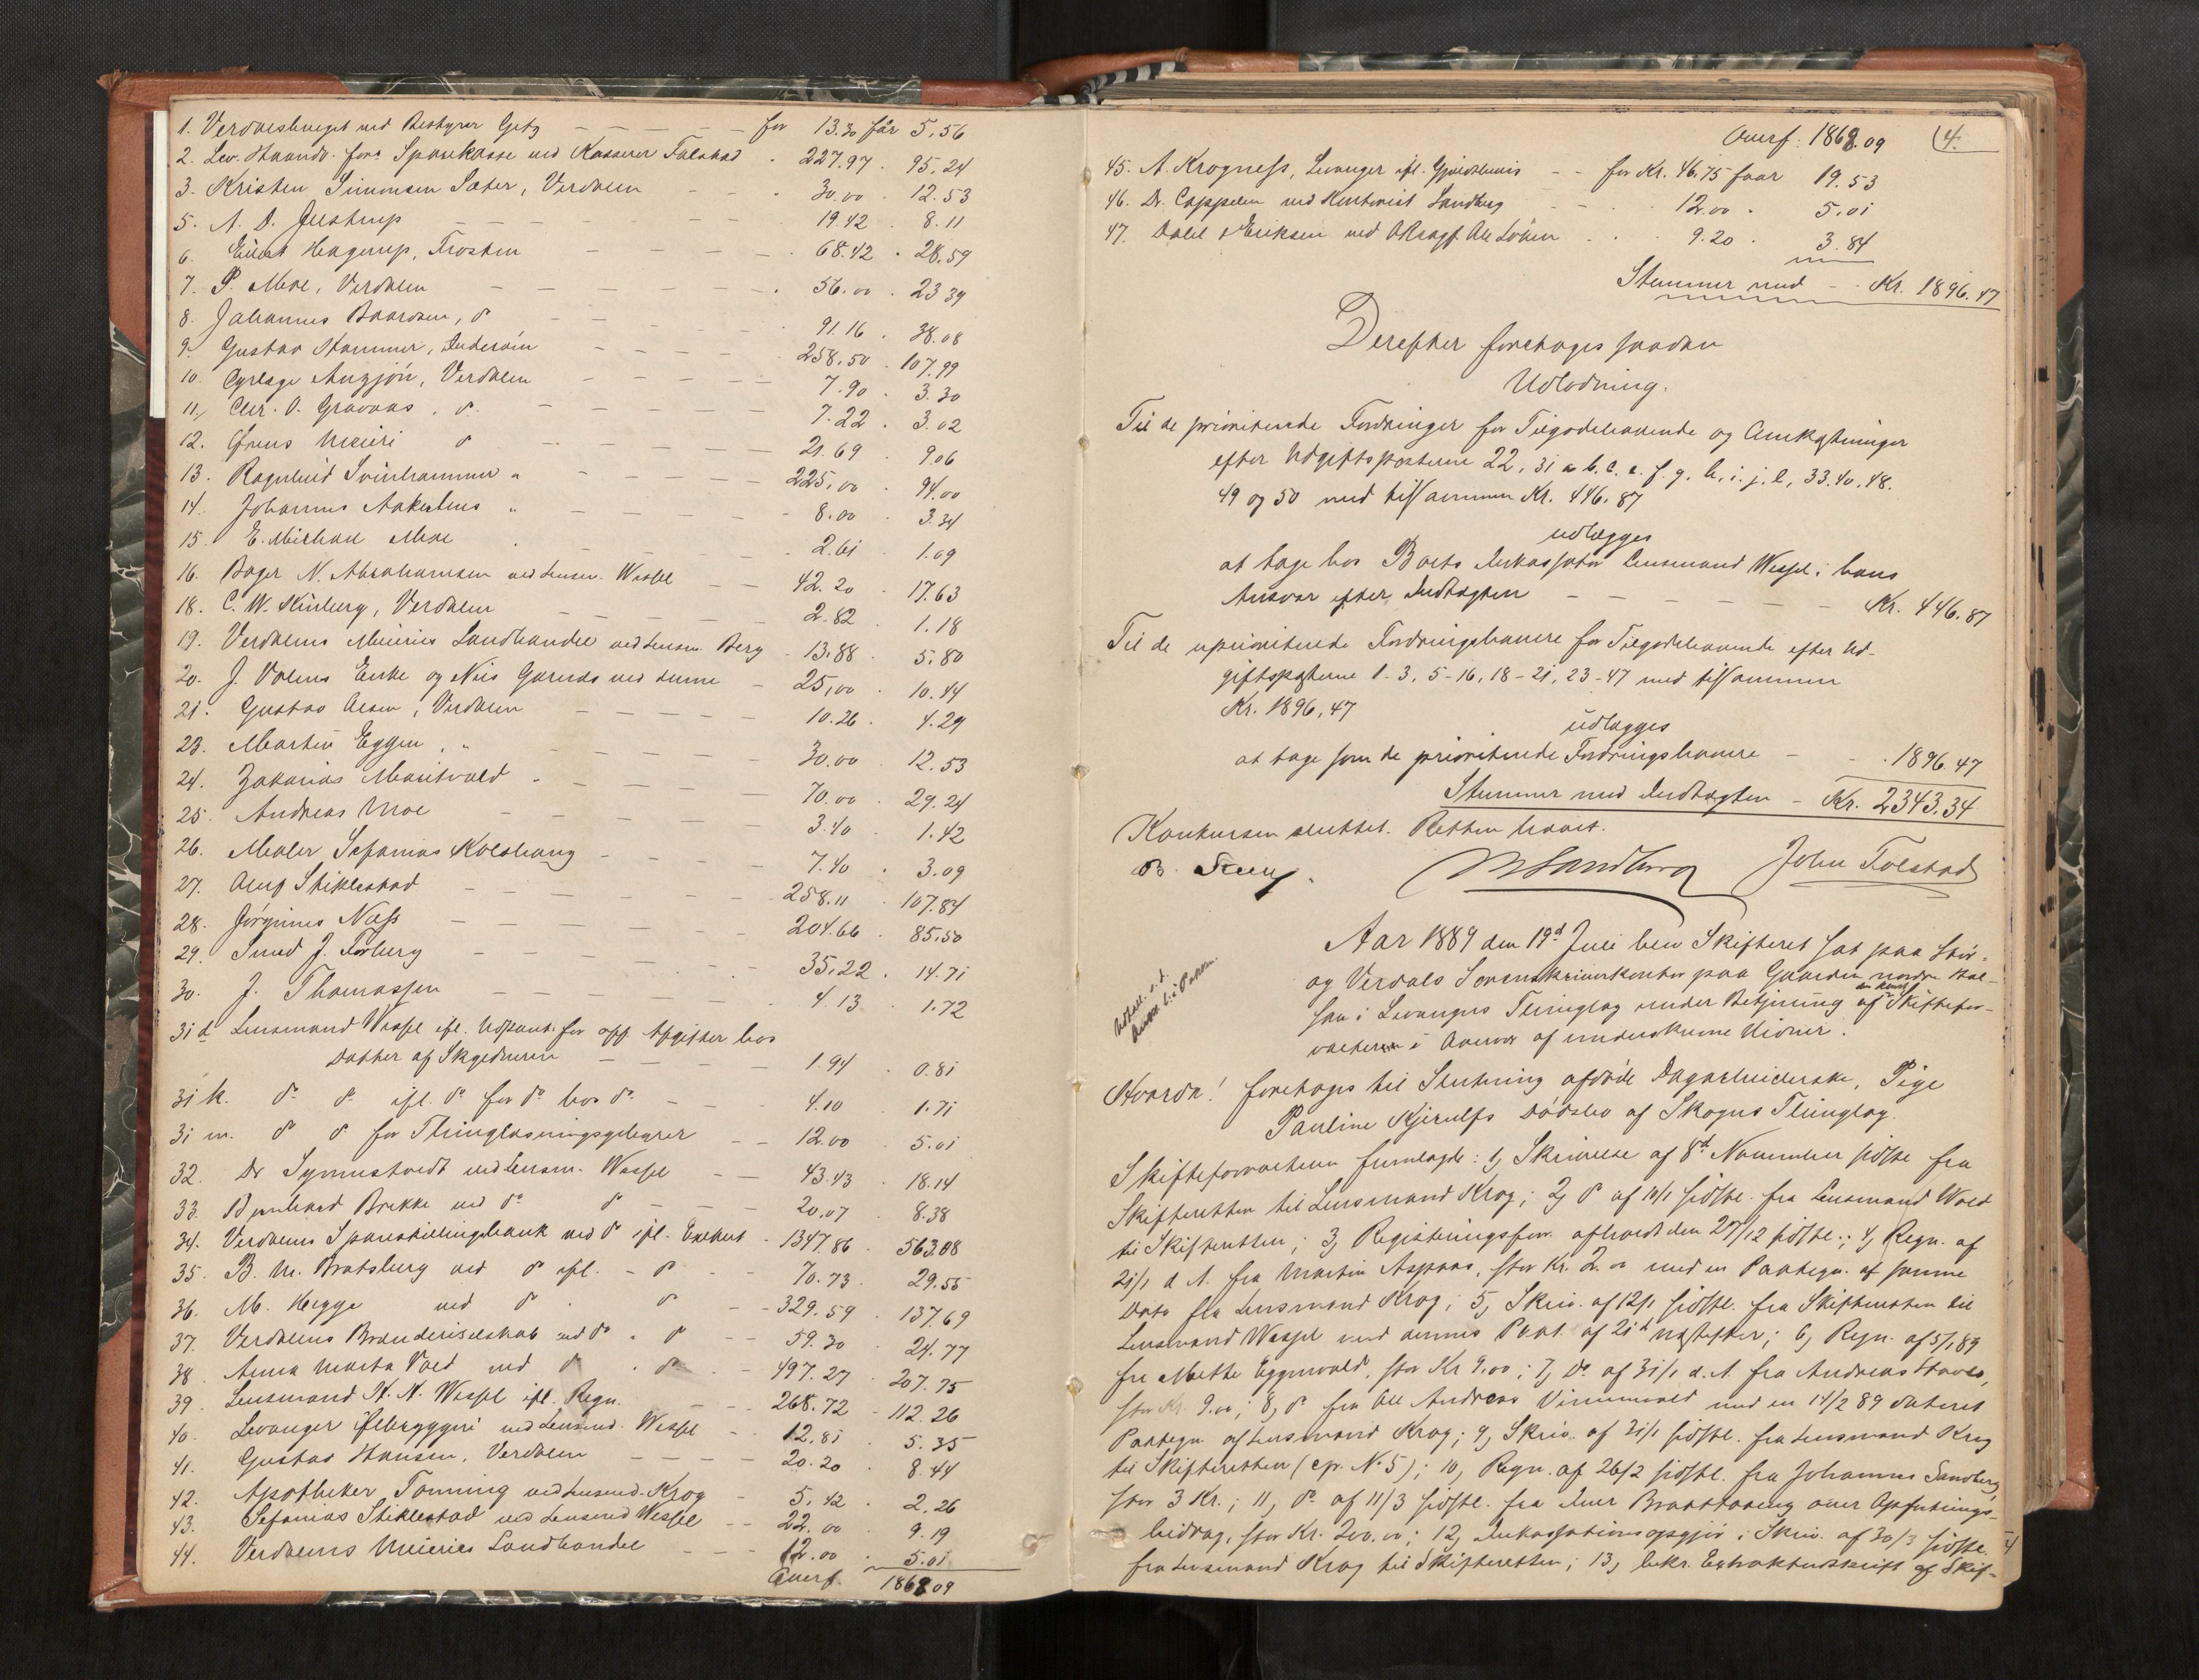 1. Verdalsbruget ved Bestyrer Getz – – – – for 13.30 får 5,56
2. Lev. Haandv. for. Sparekasse ved Kasserer Tolstad . 227.97 . 95,24
3. Kristen Simonsen Sæter, Verdalen – – 30.00 . 12.53
5. A. D. Jelstrup – – – – 19.42 . 8.11
6. Eilert Hagerup, Frosten – – – – 68.42 . 28,59
7. P. Moe, Verdalen – – – – 56.00 . 23 39
8. Johannes Baardsen, do – – – 91.16 . 38.08
9. Gustav Hammer, Inderøen – – – – 258.50 . 107.99
10. Verdalen – – – – 7.90 . 3.30
11, Chr. O. Gravaas, do – – – – 7.22 . 3.02
12. Ørens Meieri do – – – – 21.69 . 9.06
13. Ragnhild Svinhammer " – – – 225,00 . 94.00
14. Johannes Aakerhus " – – – – 8.00 . 3.34
15. E. Mikael Moe – – – 2.61 . 1.09
16. Bager N. Abrahamsen ved Lensm. Wessel – – 42.20 . 17.63
18. C. W. Kinberg, Verdalen – – – 2.82 . 1.18
19. Verdalens Meieries Landhandel ved Lensm. Berg – 13,88 . 5,80
20. J. Volens Enke og Nils Garnds ved denne – 25,00 . 10.44
21. Gustav Olsen, Verdalen – – – – 10.26 . 4.29
23. Martin Eggen, " – – – – 30.00 . 12.53
24. Zakarias Maritvold " – – – – 70.00 . 29.24
25. Andreas Moe – – – – 3.40 . 1.42
26. Maler Sefanias Kolshaug – – – – 7.40 . 3.09
27. Oluf Stiklestad – – – – 258.11 . 107.84
28. Jørginus Næss – – – – 204.66 . 85,50
29. Svend J. Forberg – – – – 35,22 . 14.71
30. J. Thomassen – – – – 4.13 . 1.72
31 d Lensmand Wessel ifl. Udpant. for opp. Afgifter hos
Datter af Skyedneren – – – 1.94 . 0.81
31 k. do do ifl. do for do hos do – – 4.10 . 1.71
31 m. do do for Thinglæsningsgebyrer – – 12.00 . 5.01
32. Dr Synnestvedt ved Lensm. Wessel – – 43.43 . 18.14
33. Bernhard Brekke ved do do – – – 20.07 . 8.38
34. Verdalens Spareskillingsbank ved do ifl. Exekut. – 1347.86 . 563.08
35. B. M. Bratsberg ved do ifl. – do – – 70.73 . 29.55
36. M. Hegge ved do . do – – 329.59 . 137.69
37. Verdalens Brænderiselskab ved do " do – – 59.30 . 24.77
38. Anna Marta Vold ved do . do – – 497.27 . 207.75
39. Lensmand N. N. Wessel ifl. Regn. – – 268.72 . 112.26
40. Levanger Ølbryggeri ved Lensmd. Wessel – – 12.81 . 5.35
41. Gustav Hansen, Verdalen – – – – 20.20 . 8.44
42. Apotheker Tønning ved Lensmd. Krog – 5,42 . 2.26
43. Sefanias Stiklestad ved Lensmd Wessel – – 22.00 . 9.19
44. Verdalens Meieries Landhandel – – – 12.00 . 5.01
Overf. 1868 09
Overf: 1868.09 4.
45. A. Krogness, Levanger ifl. Gjældsbevis – – for Kr. 46.75 faar 19.53
46. Dr. Cappelen ved Kontorist Sandberg – – 12.00 . 5,01
47. Dahl & Eriksen ved O.Ragf. Ole Løken . . 9.20 . 3.84
Stemmer med – . Kr. 1896.47
Derefter foretoges saadan
Udlodning.
Til de prioriterede Fordringer for Tilgodehavende og Omkostninger
efter Udgiftsposterne 22, 31 a b. c. e. f. g. h, i. j. l, 33. 40. 48.
49 og 50 med tilsammen Kr. 446.87
udlægges
at tage hos Boets Inkassator Lensmand Wessel i hans
Ansvar efter Indtægten – – – – – Kr. 446.87
Til de uprioriterede Fordringshavere for Tilgodehavende efter Ud-
giftsposterne 1-3, 5-16, 18-21, 23-47 med tilsammen
Kr. 1896,47
udlægges
at tage som de prioriterede Fordringshavere – – . 1896.47
Stemmer med Indtægten – Kr. 2343.34
Konkursen sluttet. Retten hævet.
MSandberg John Tolstad
Aar 1889 den 19d Juli blev Skifteret sat paa Stør-
og Verdals Sorenskriverkontor paa Gaarden nordre Hal-
san i Levangers Thinglag under Betjening af Skiftefor-
valteren i Overvær af underskrevne Vidner.
Hvorda! foretoges til Slutning afdøde Dagarbeiderske, Pige
Pauline Kjerulfs Dødsbo af Skogns Thinglag.
Skifteforvalteren fremlagde: 1, Skrivelse af 8d November sidstl fra
Skifteretten til Lensmand Krog; 2, do af 10/1 sidstl. fra Lensmand Wold
til Skifteretten; 3, Registreringsforr. afholdt den 27/12 sidstl.; 4, Regn. af
21/1 d. A. fra Martin Aspaas, stor Kr. 2.00 med en Paategn. af samme
Dato fra Lensmand Krog; 5, Skriv. af 12/1 sidstl. fra Skifteretten til
Lensmand Wessel med dennes Paat. af 21d næstefter; 6, Regn. af 5/1 89
fra Mette Eggenvold, stor Kr 9.00; 7, Do af 31/1 d. A. fra Andreas Haves,
stor Kr. 9.00; 8, do fra Ole Andreas Vinnevold med en 14/2 89 dateret
Paategn af Lensmand Krog; 9, Skriv. af 21/1 sidstl. fra Lensmand Krog
til Skifteretten (cfr. No 5); 10, Regn. af 26/2 sidstl. fra Johannes Sandberg,
stor 3 Kr.; 11, do af 11/3 sidstl. fra Iver Brattaaseng over Opfostrings-
bidrag, stor Kr. 200.00; 12, Inkassationsopgjør i Skriv. af 30/3 sidstl.
fra Lensmand Krog til Skifteretten; 13, bekr. Extraktudskrift af Skif-